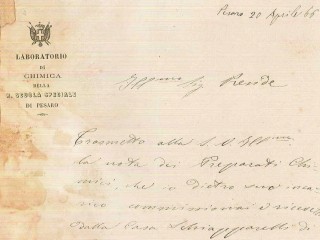 Pesaro 20 Aprile 66
LABORATORIO
DI
CHIMICA
DELLA
R. SCUOLA SPECIALE
DI PESARO
Sig Preside
Trasmetto alla S. V. Illma
la nota dei Preparati Chi-
mici, che dietro suo inca-
rico commissionai e ricevetti
dalla Casa Schiapparelli di